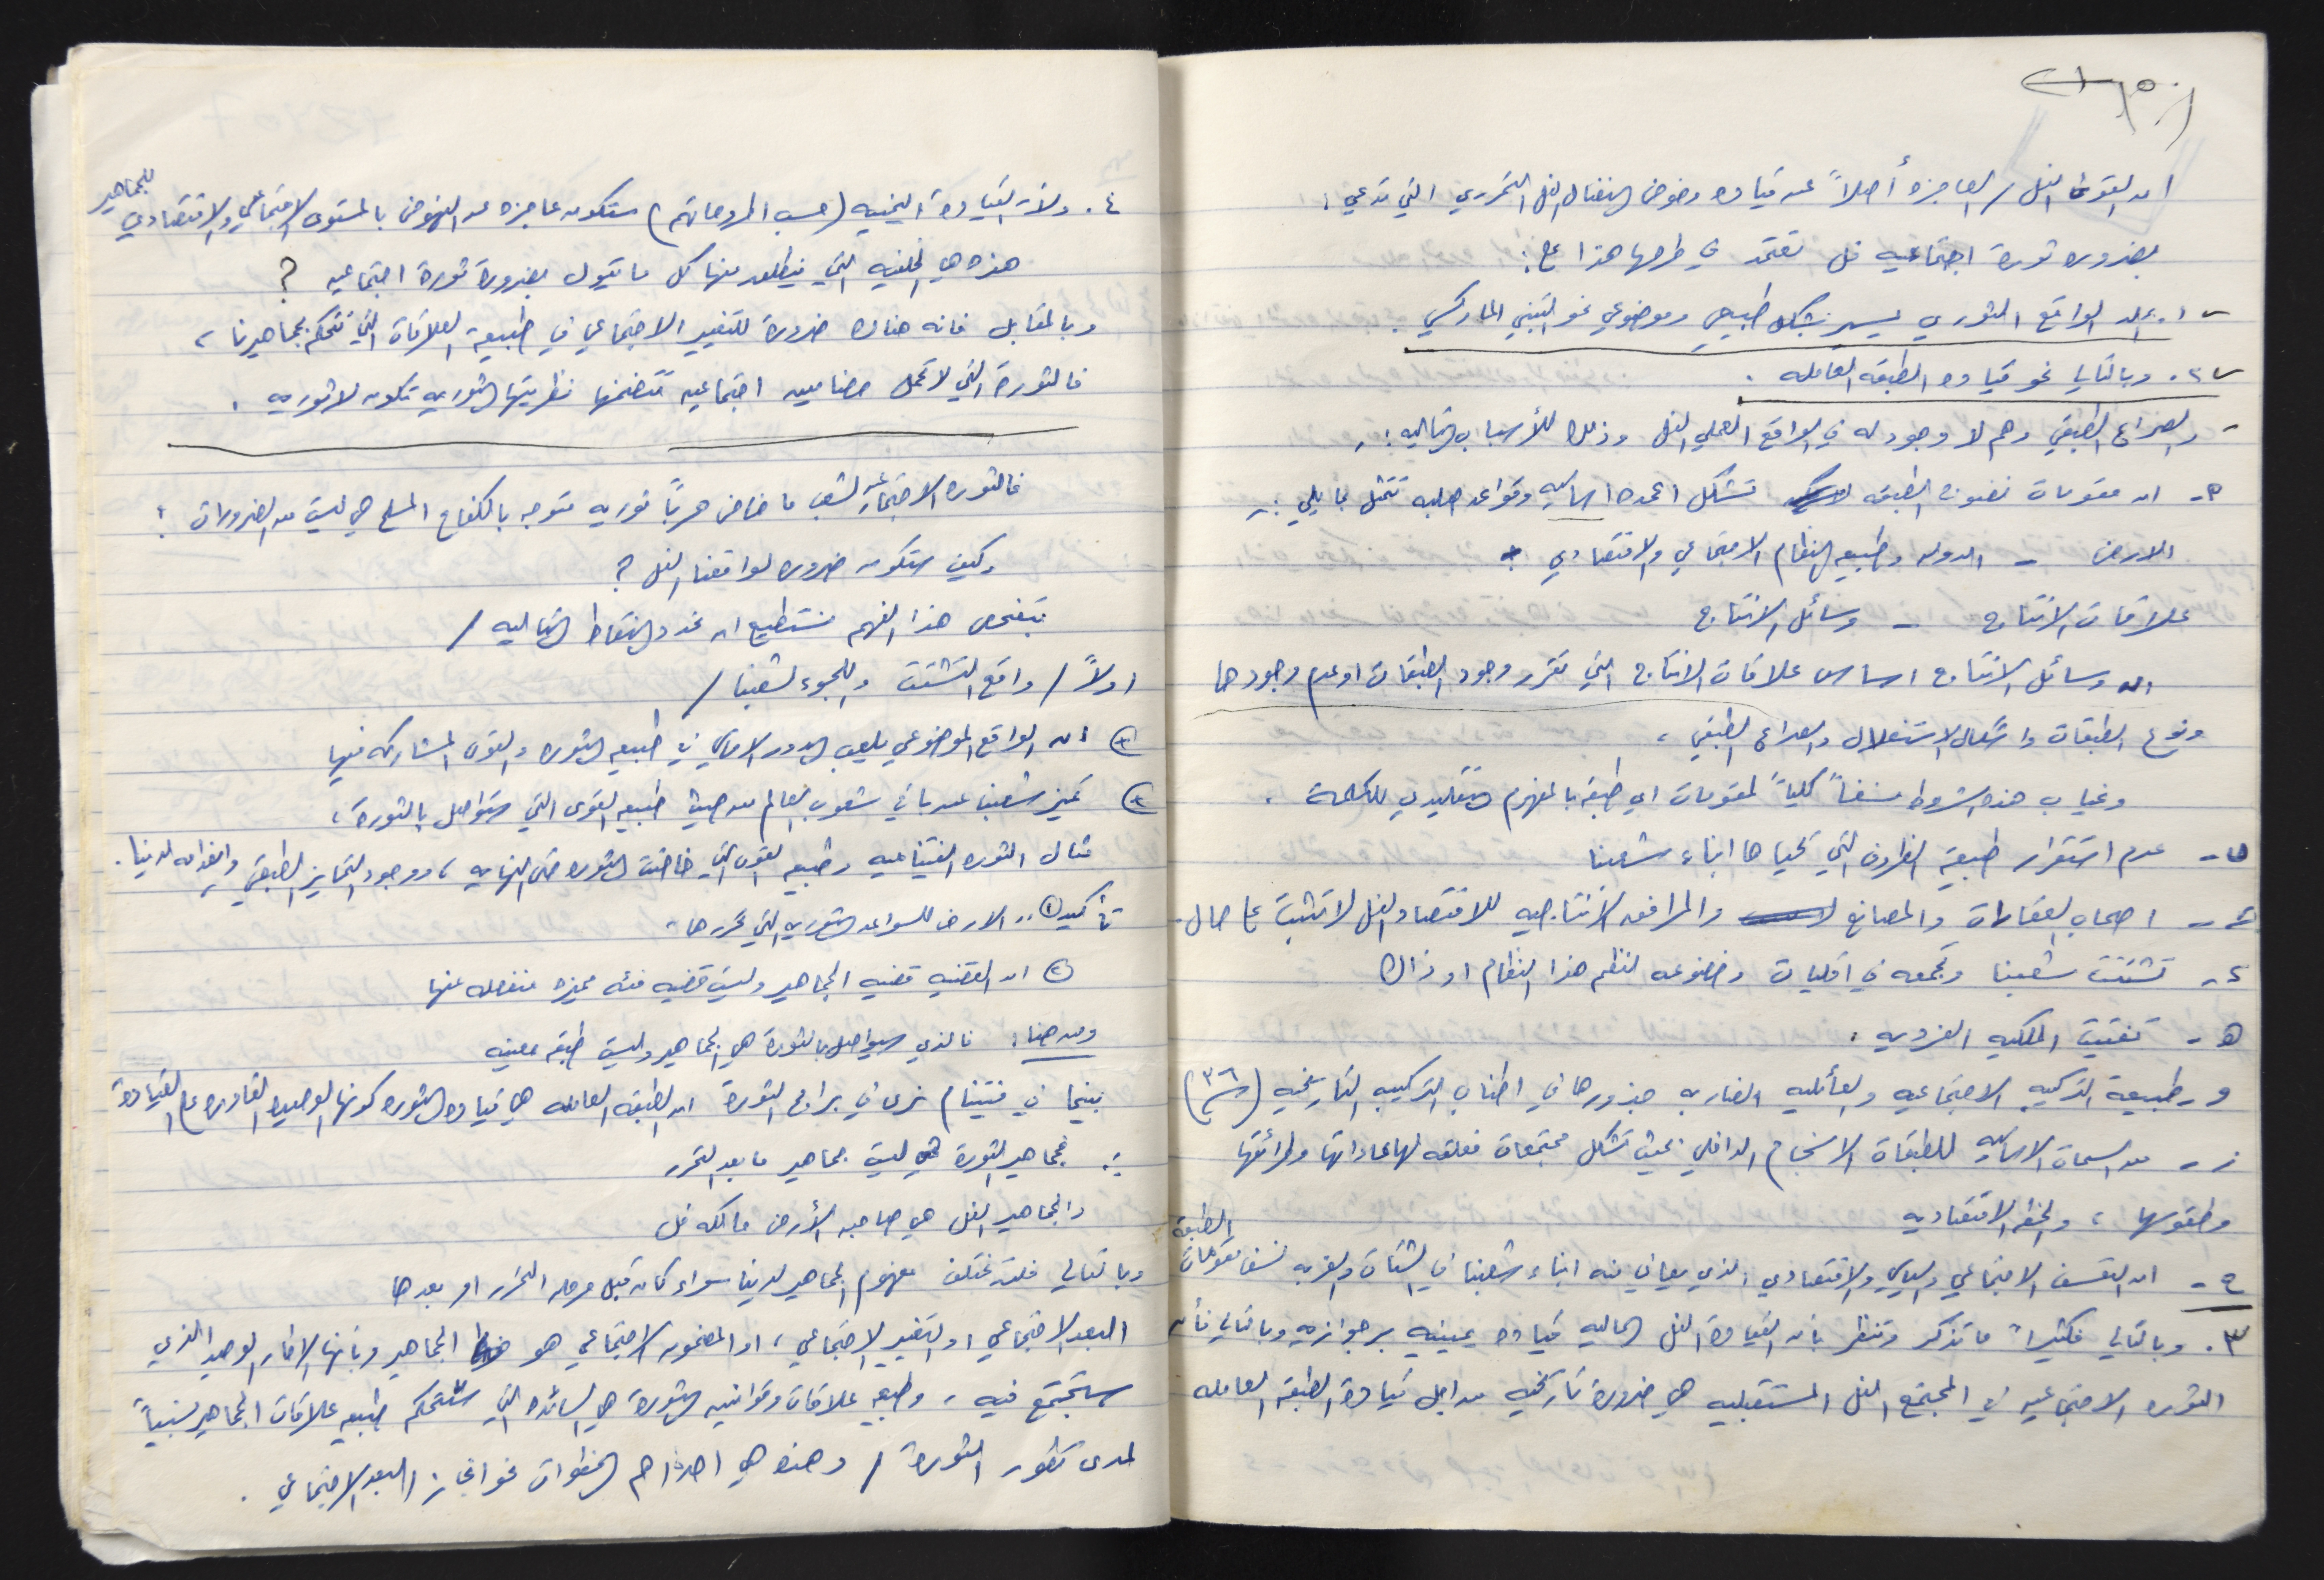 ان القوى الفل / العاجزه أصلاً عن قياده وخوض النضال الفل التحرري التي تدعي :
بضروره ثورة اجتماعيه فل تعتمد في طرحها هذا على :
١. ان الواقع الثوري يسير بشكل طبيعي وموضوعي نحو التبني الماركسي .
٢. وبالتالي نحو قياده الطبقه العامله .
- والصراع الطبقي وهم لا وجود له في الواقع العملي الفل وذلك للأسباب التاليه :
أ- ان مقومات نضوج الطبقه تشكل اعمده اساسيه وقواعد صلبه تتمثل بما يلي :-
الارض - الدوله وطبيعه النظام الاجتماعي والاقتصادي
علاقات الانتاج - وسائل الانتاج
ان وسائل الانتاج اساس علاقات الانتاج التي تقرر وجود الطبقات او عدم وجودها
ونوع الطبقات واشكال الاستغلال والصراع الطبقي ،
وغياب هذه الشروط نسفاً كلياً لمقومات اي طبقه بالمفهوم التقليدي للكلمة .
ب- عدم استقرار طبيعة الظروف التي يحياها ابناء شعبنا
ج- اصحاب العقارات والمصانع والمرافق الانتاجيه للاقتصاد الفل لا تثبت على حال
د- تشتت شعبنا وتجمعه في اقليات وخضوعه لنظم هذا النظام او ذاك
هـ- تفتيت الملكيه الفرديه :
و- طبيعة التركيب الاجتماعيه والعائليه الضاربه جذورها في اطناب التركيب التاريخيه (٣٦)
ز- من السمات الاساسيه للطبقات الانسجام الداخلي بحيث تشكل مجتمعات مغلقه لها عاداتها وطرائقها
وطقوسها ، والخطه الاقتصاديه
ح- ان التعسف الاجتماعي والسياسي والاقتصادي الذي يعاني منه ابناء شعبنا في الشتات والغربه نسف مقومات الطبقة
٣. وبالتالي فكثيراً ما تذكر وتنظر بأن القيادة الفل الحاليه قياده يمينيه برجوازيه وبالتالي فأن
الثوره الاجتماعيه في المجتمع الفل المستقبليه هي ضرورة تاريخيه من اجل قيادة الطبقه العامله
٤. ولأن القيادة اليمنيه (حسب اطروحاتهم) ستكون عاجزه عن النهوض بالمستوى الاجتماعي والاقتصادي للجماهير
هذه هي الخلفيه التي ينطلق منها كل ما يقول بضرورة ثورة اجتماعيه ؟
وبالمقابل فانه هناك ضرورة للتغيير الاجتماعي في طبيعه العلاقات التي تتحكم بجماهيرنا ،
فالثورة التي لا تحمل مضامين اجتماعيه تتضمنها نظريتها الثوريه تكون لا ثوريه .
فالثوره الاجتماعيه لشعب ما خاض حرباً ثوريه تتوجه بالكفاح المسلح هي ليست من الضرورات !
وكيف ستكون ضروره لواقعنا الفل ؟
بتفحص هذا الفهم نستطيع ان نحدد النقاط التاليه /
اولاً / واقع التشتت واللجوء لشعبنا /
١ ان الواقع الموضوعي يلعب الدور الاساسي في طبيعه الثوره والقوى المشاركه فيها
٢ تميز شعبنا عن باقي شعوب العالم من حيث طبيعه القوى التي ستواصل بالثورة ،
مثال الثوره الفيتناميه وطبيعه القوى التي خاضت الثوره حتى النهايه ، ووجود التمايز الطبقي وانعدامه لدينا .
تأكيد ١ .. الارض للسواعد الثوريه التي تحررها .
٢ ان القضيه قضيه الجماهير وليست قضيه فئه مميزه منفصله عنها
ومن هنا : فالذي سيواصل بالثورة هي الجماهير وليست طبقه معينه
بينما في فيتنام نرى في برامج الثورة ان الطبقه العامله هي قياده الثوره كونها الوحيده القادره على القيادة
فجماهير الثورة هي ليست جماهير ما بعد التحرر
والجماهير الفل هي صاحبه الأرض مالكه فل
وبالتالي فلن يختلف مفهوم الجماهير لدينا سواء كان قبل مرحله التحرر او بعدها
البعد الاجتماعي او التغيير الاجتماعي ، او المضمون الاجتماعي هو الجماهير وبأنها الاطار الوحيد الذي
ستجتمع فيه ، وطبيعه علاقات وقوانين الثورة هي السائده التي ستحكم طبيعه علاقات الجماهير نسبياً
لمدى تطور الثورة / وهذه هي احد اهم الخطوات نحو انجاز البعد الاجتماعي .